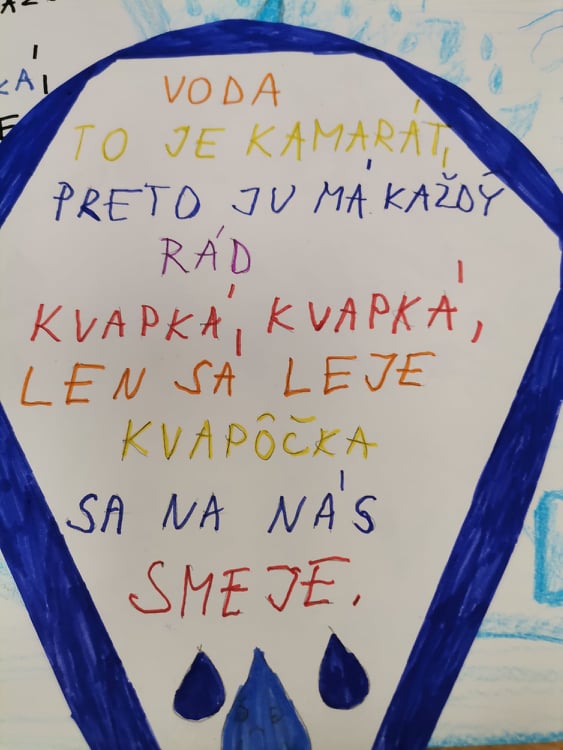 VODA
TO JE KAMARÁT,
PRETO JU MÁ KAŽDÝ
RÁD
KVAPKÁ, KVAPKÁ,
LEN SA LEJE
KVAPÔČKA
SA NA NÁS
SMEJE.